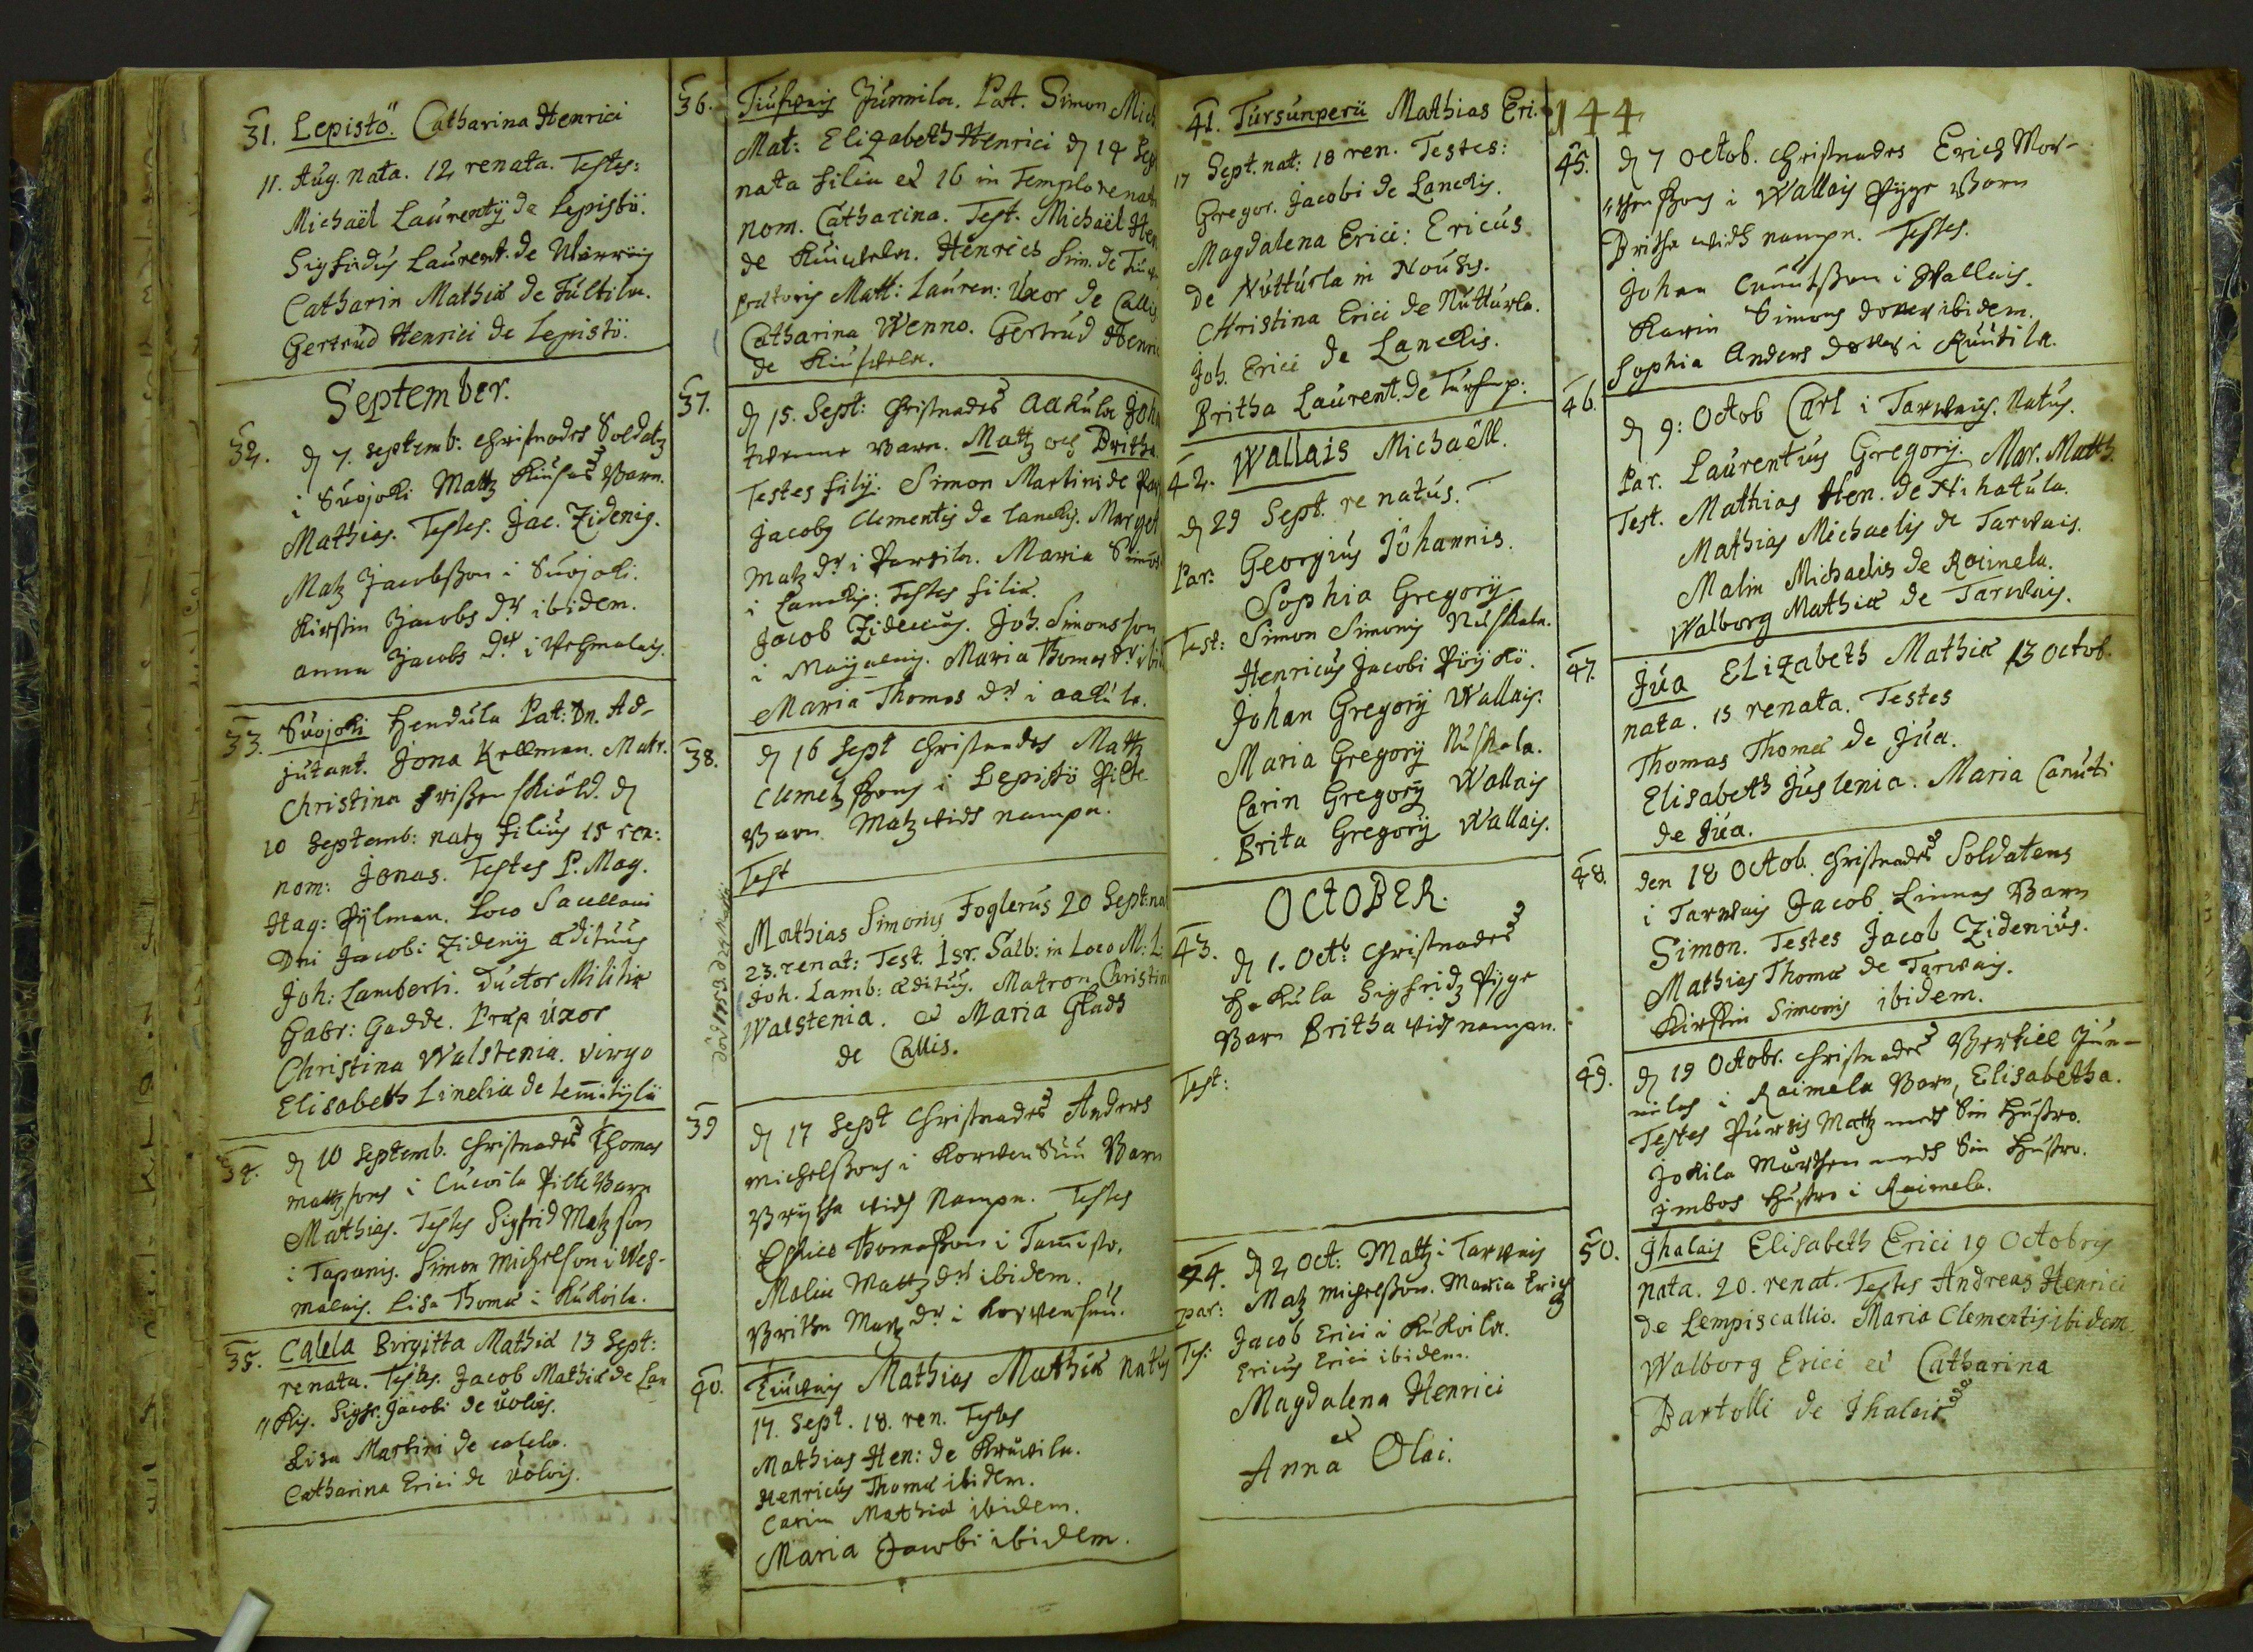 31. Lepistö. Catharina Henrici
11. Aug. nata. 12 renata. Testes:
Michaël Laurentÿ de Lepistö.
Sigfridus Laurent. de
Catharin Mathiæ de Fultila.
Gertrud Henrici de Lepistö.
September.
32. d 7. Septemb: Christnades Soldatz
i Suojoki Mattz Barn.
Mathias. Testes. Jac. Zidenig.
Matz Jacobsson i Suojoki.
Kirstin Jacobs dr ibidem.
Anna Jacobs dr i
33. Suojoki Hendula Pat: Dn. Ad-
jutant. Jona Kellman. Matr.
Christina skiöld. d
10 Septemb: natg filius 15 ren:
nom: Jonas. Testes P. Mag.
Hag: Pÿlman. Loco Sacellani
Dni Jacobi Zidenÿ ædituus
Joh: Lamberti. Ductor Militiæ
Gabr: Gadde. Præp uxor
Christina Walstenia. Virgo
Elisabeth Linelia de
34. d 10 Septemb. Christnades Thomas
mattzsons i Cuivila Pilte Barn
Mathias. Testes Sigfrid Matzson
i Tapanis. Simon Michelson i Weh-
malais. Lisa Thomæ i Kukoila.
35. Calela Birgitta Mathiæ 13 Sept:
renata. Testes. Jacob Mathiæ de Lan
"kis. Sigfr. Jacobi de Uolois.
Lisa Martini de calela.
Catharina Erici de Uolois.
36. Junnila. Pat. Simon Mich
Mat: Elizabeth Henrici d 14 Sep
nata filia et 16 in Templo renata
nom. Catharina. Test. Michaël Hen
de Henrich Sim. de
prætoris Matt: Lauren: Uxor de Callis
Catharina Wenno. Gertrud Henric
de
37. d 15. Sept: Christnades Aakula Joh
twenne Barn. Mattz och Britha.
Testes filÿ: Simon Martini de
Jacobg Clementis de Lanckis. Marget
Matz dr i Maria Simons
i Lanckis: Testes filiæ.
Jacob Zidenius. Joh. Simonsson
i Maria Thomas dr ibid
Maria Thomas dr i Aakula.
38. d 16 Sept Christnades Mattz
Clemetzsons i Lepistö Pilte
Barn Matz vidh nampn.
Test
Mathias Simonis Foglerus 20 Sept: na
23. renat: Test. Isr. Salb: in Loco M: L:
Joh. Lamb: ædituus. Matron Christin
Walstenia. et Maria Gladh
de Callis.
39 d 17 Sept Christnades Anders
Michelssons i Korvensuu Barn
Brÿtha vidh Nampn. Testes
Eskill Thomasson i Tamisto.
Malin Mattz dr ibidem.
Britha Matz dr i Korvensuu.
40. Mathias Mathiæ natus
17. Sept. 18. ren. Testes
Mathias Hen: de
Henricus Thomæ ibidem.
Carin Mathiæ ibidem.
Maria Jacobi ibidem.
41. Tursunperü Mathias Eri.
17 Sept. nat: 18 ren. Testes:
Gregor. Jacobi de Lanckis.
Magdalena Erici: Ericus
de Nutturla in Nousis.
Christina Erici de Nutturla.
Joh. Erici de Lanckis.
Britha Laurent. de Tursunp:
42. Wallais Michaëll.
d 29 Sept. renatus.
Par: Georgius Johannis.
Sophia Gregorÿ
Test: Simon Simonis Nuskala.
Henricus Jacobi Pöÿkö.
Johan Gregorÿ Wallais.
Maria Gregorÿ Nuskala.
Carin Gregorÿ Wallais
Brita Gregorÿ Wallais.
OCTOBER.
43. d 1. Octb: Christnades
Hakula Sigfridz Pÿge
Barn Britha vidh nampn.
Test:
44. d 2 Oct: Mattz i Tarvais
par: Matz Michelsson. Maria Erichz
Tes: Jacob Erici i Kukoila.
Ericus Erici ibidem.
Magdalena Henrici
et
Anna Olai.
144
45. d 7 Octob. Christnades Erich Mor-
"thenssons i Wallais Pÿge Barn
Britha vidh nampn. Testes.
Johan Cnuutsson i Wallais.
Karin Simons dotter ibidem.
Sophia Anders dotter i Ruutila.
46. d 9: Octob Carl i Tarvais. Natus.
Par. Laurentius Gregorÿ. Mar. Matth.
Test. Mathias Hen. de Nihatula.
Mathias Michaelis de Tarvais.
Malin Michaelis de Raimela.
Walborg Mathiæ de Tarvais.
47. Jua Elizabeth Mathiæ 13 Octob.
nata. 15 renata. Testes
Thomas Thomæ de Jua.
Elisabeth Juslenia. Maria Canuti
de Jua.
48. den 18 Octob. Christnades Soldatens
i Tarvais Jacob Linnas Barn
Simon. Testes Jacob Zidenius.
Mathias Thomæ de Tarvais.
Kirstin Simonis ibidem.
49. d 19 Octobr. Christnades Bertill Jun-
nilas i Raimela Barn, Elisabetha.
Testes Purhis Matz medh Sin Hustro.
Jokila Mårthen medh Sin Hustro.
Jmbos Hustro i Raimela.
50. Jhalais Elisabeth Erici 19 Octobris
nata. 20. renat. Testes Andreas Henrici
de Lempiscallio. Maria Clementis ibidem
Walborg Erici et Catharina
Bartolli de Jhalais